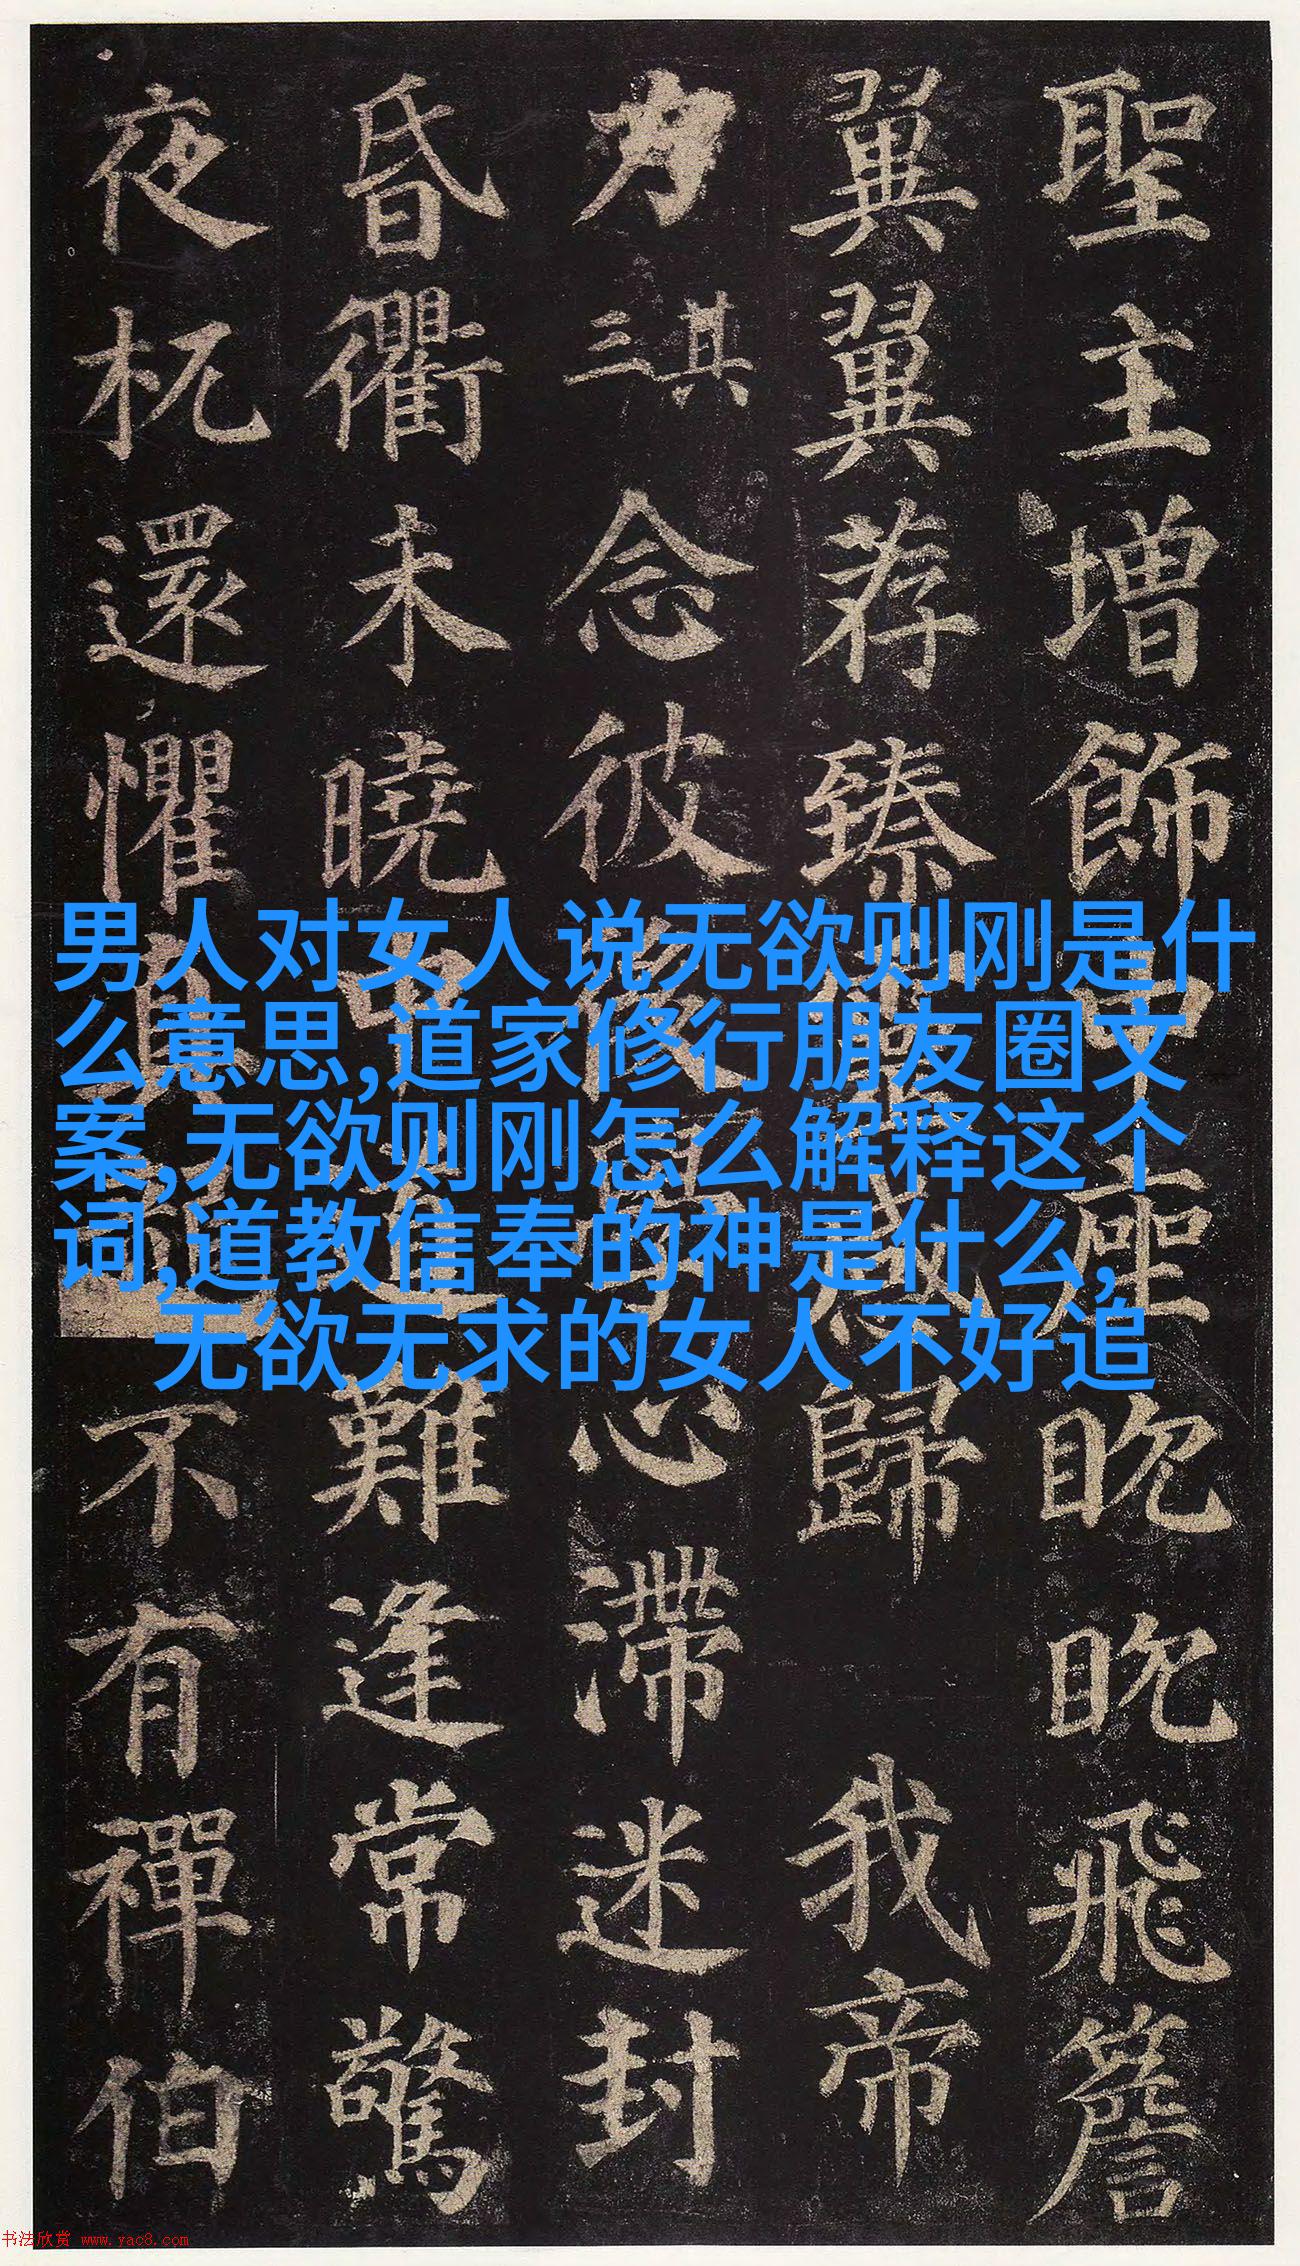 聖主増飾中座眈眈飛簷
翼翼荐臻歸我帝
力三其念彼心滯迷封
昏衢未曉難逢常驚
夜杌還懼真不有禪伯
男人对女人说无欲则刚是什
么意思,道家修行朋友圈文
案,无欲则刚怎么解释这个
词,道教信奉的神是什么,
无欲无求的女人不好追
书法欣赏 www.yac8.com